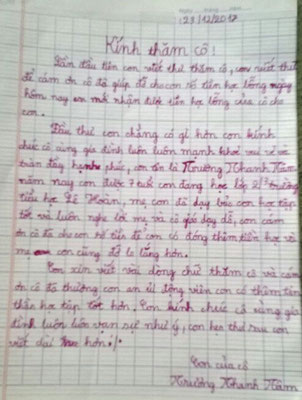 Ngày tháng năm
23/12/2017
Kính thăm cô!
Lần đầu tiên con viết thư thăm cô, con viết thư
để cảm ơn cô đã giúp đỡ cho con số tiền học bổng
hôm nay con mới nhận được tiền học bổng của cô cho
con.
Đầu thư con chẳng có gì hơn con kính
chúc cô cùng gia đình luôn luôn mạnh khoẻ vui vẻ và
tràn đầy hạnh phúc, con tên là Trương Thanh Hàm
năm nay con được 7 tuổi con đang học lớp 2 trường
tiểu học Lê Hoàn, mẹ con đã dạy bảo con học tập
tốt và luôn nghe lời mẹ và cô giáo dạy dỗ, con cảm
ơn cô đã cho con số tiền để con có đóng thêm tiền học và
mẹ con cũng đỡ lo lắng hơn.
Con xin viết vài dòng chữ thăm cô và cảm
ơn cô đã thương con an ủi động viên con có thêm tinh
thần học tập tốt hơn. Con kính chúc cô cùng gia
đình luôn luôn vạn sự như ý, con hẹn thư sau con
viết dài hơn./.
Con của cô
Trương Thanh Hàm